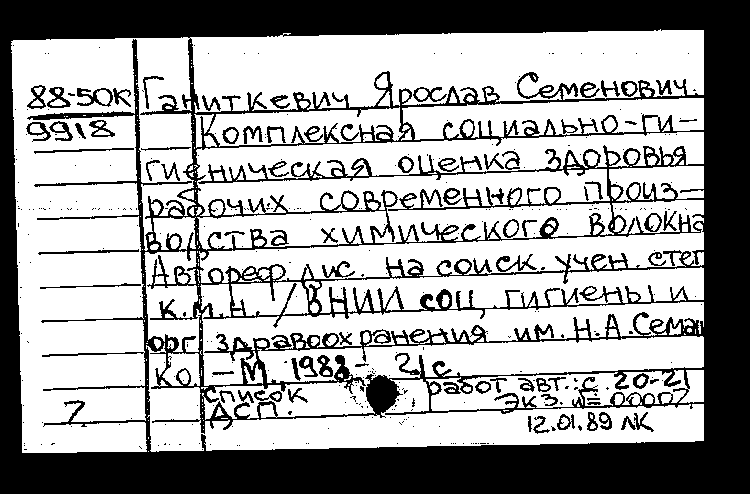 88-50К Ганиткевич, Ярослав Семенович.
9918 Комплексная социально-ги-
гиеническая оценка здоровья
рабочих современного произ-
водства химического волокна
Автореф. дис. на соиск. учен. степ
к.м.н. / ВНИИ соц. гигиены и
орг. здравоохранения им. Н.А. Семаш
ко. - М., 1988 - 21 с.
список работ авт.: с. 20-21
7 ДСП. Экз. № 00007.
12.01.89 ЛК